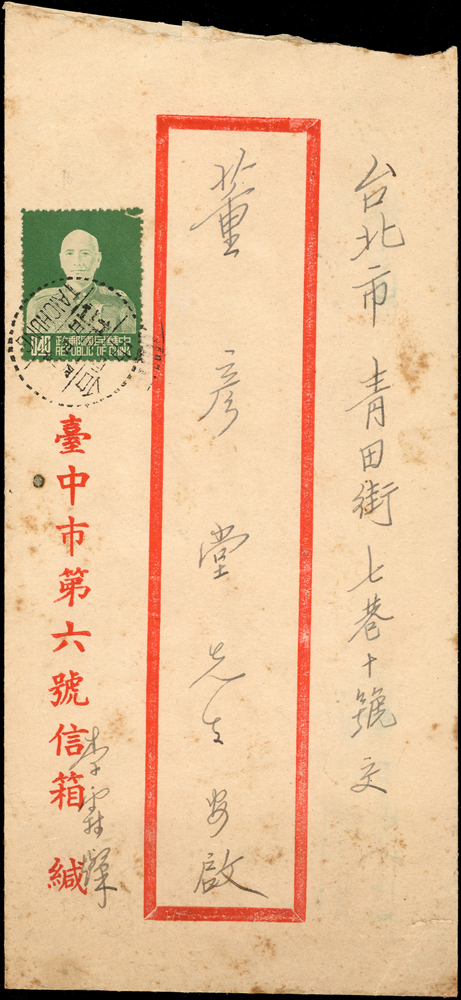 台北市 青田街 七巷十號 交
董彥堂先生 安啟
臺中市第六號信箱 緘
李霖燦
中華民國郵政
REPUBLIC OF CHINA
040
TAICHUNG